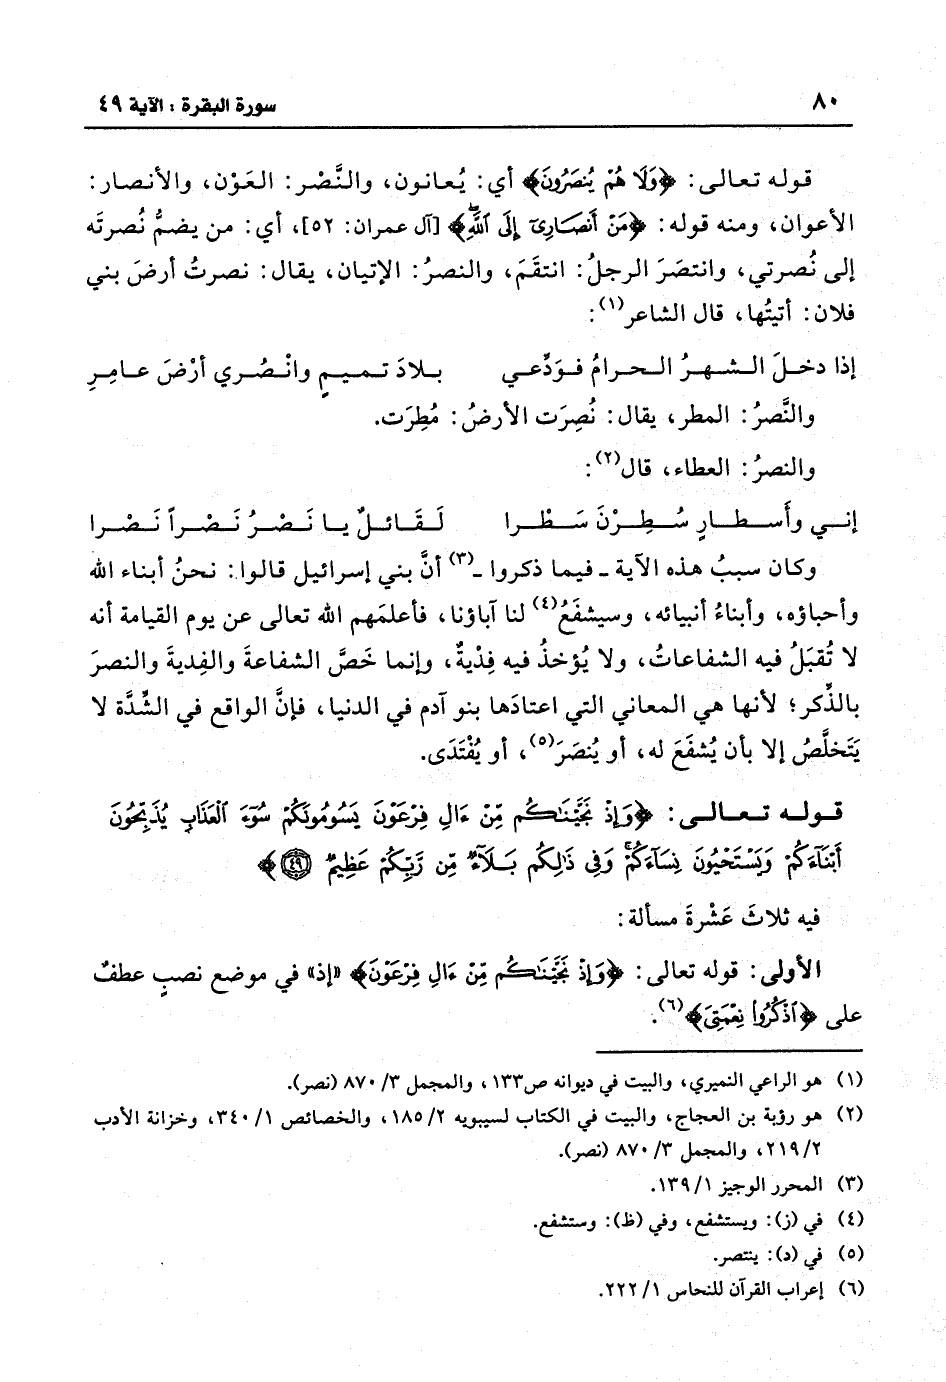 ٨٠ سورة البقرة : الآية ٤٩
قوله تعالى: ﴿وَلَا هُمْ يُنصَرُونَ﴾ أي: يُعانون، والنَّصْر: العَوْن، والأنصار:
الأعوان، ومنه قوله: ﴿مَنْ أَنصَارِىٓ إِلَى ٱللَّهِۖ﴾ [آل عمران: ٥٢]، أي: من يضمُّ نُصرتَه
إلى نُصرتي، وانتصَرَ الرجلُ: انتقَمَ، والنصرُ: الإتيان، يقال: نصرتُ أرضَ بني
فلان: أتيتُها، قال الشاعر(١):
إذا دخلَ الشهرُ الحرامُ فودِّعي بلادَ تميمٍ وانْصُري أرْضَ عامرِ
والنَّصرُ: المطر، يقال: نُصِرَت الأرضُ: مُطِرَت.
والنصرُ: العطاء، قال(٢):
إني وأَسطارٍ سُطِرْنَ سَطْرا لَقَائلٌ يا نَصْرُ نَصْراً نَصْرا
وكان سببُ هذه الآية ـ فيما ذكروا ـ(٣) أنَّ بني إسرائيل قالوا: نحنُ أبناء الله
وأحباؤه، وأبناءُ أنبيائه، وسيشفَعُ(٤) لنا آباؤنا، فأعلمَهم الله تعالى عن يوم القيامة أنه
لا تُقبَلُ فيه الشفاعاتُ، ولا يُؤخذُ فيه فِدْيةٌ، وإنما خَصَّ الشفاعةَ والفِديةَ والنصرَ
بالذِّكر؛ لأنها هي المعاني التي اعتادَها بنو آدم في الدنيا، فإنَّ الواقع في الشِّدَّة لا
يَتَخلَّصُ إلا بأن يُشفَعَ له، أو يُنصَرَ(٥)، أو يُفْتَدَى.
قوله تعالى: ﴿وَإِذْ نَجَّيْنَٰكُم مِّنْ ءَالِ فِرْعَوْنَ يَسُومُونَكُمْ سُوٓءَ ٱلْعَذَابِ يُذَبِّحُونَ
أَبْنَآءَكُمْ وَيَسْتَحْيُونَ نِسَآءَكُمْۚ وَفِى ذَٰلِكُم بَلَآءٌ مِّن رَّبِّكُمْ عَظِيمٌ ٤٩﴾
فيه ثلاثَ عَشْرةَ مسألة:
الأولى: قوله تعالى: ﴿وَإِذْ نَجَّيْنَٰكُم مِّنْ ءَالِ فِرْعَوْنَ﴾ «إذ» في موضع نصبٍ عطفٌ
على ﴿ٱذْكُرُوا۟ نِعْمَتِىَ﴾(٦).
(١) هو الراعي النميري، والبيت في ديوانه ص١٣٣، والمجمل ٣/ ٨٧٠ (نصر).
(٢) هو رؤبة بن العجاج، والبيت في الكتاب لسيبويه ٢/ ١٨٥، والخصائص ١/ ٣٤٠، وخزانة الأدب
٢/ ٢١٩، والمجمل ٣/ ٨٧٠ (نصر).
(٣) المحرر الوجيز ١/ ١٣٩.
(٤) في (ز): ويستشفع، وفي (ظ): وستشفع.
(٥) في (د): ينتصر.
(٦) إعراب القرآن للنحاس ١/ ٢٢٢.